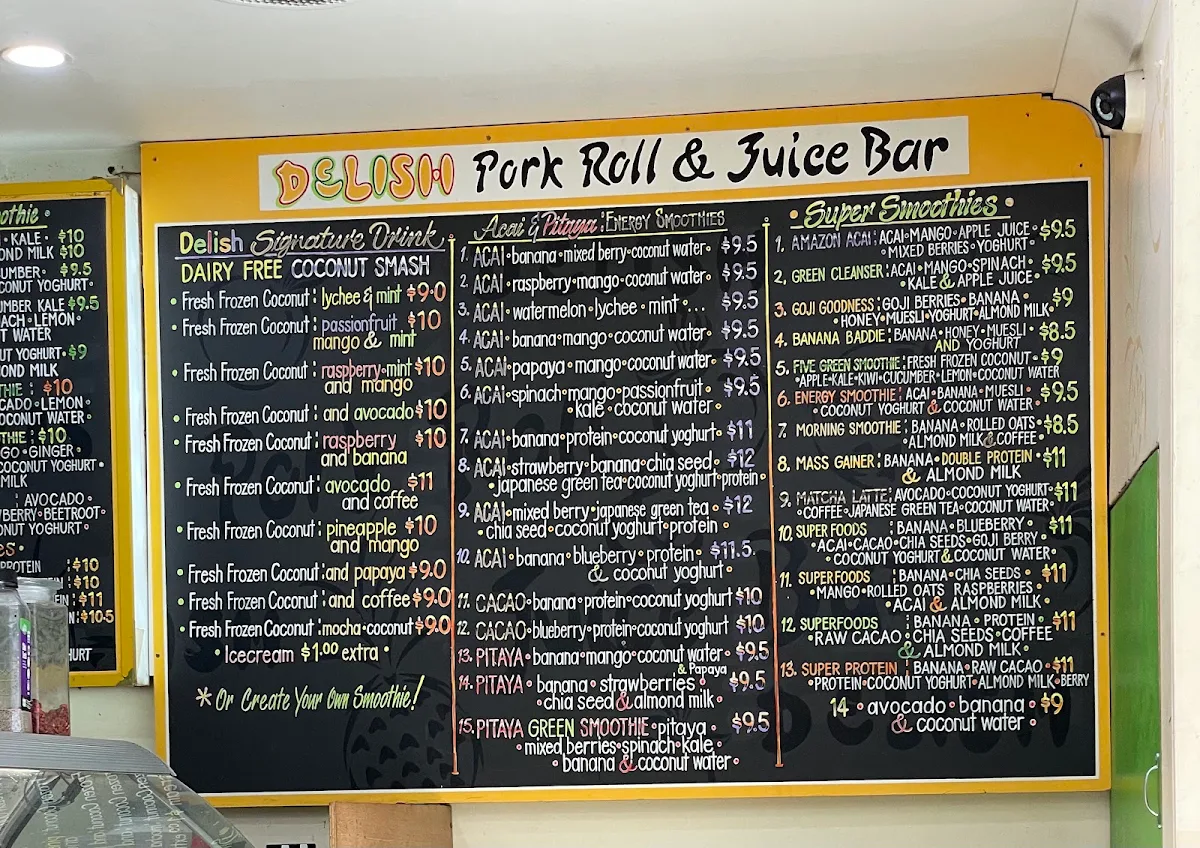 DELISH Pork Roll & Juice Bar
othie •
• KALE • $10
OND MILK $10
UMBER • $9.5
CONUT YOGHURT •
UMBER KALE $9.5
ACH • LEMON •
T WATER
UT YOGHURT • $9
OND MILK
THIE : $10
CADO • LEMON •
OCONUT WATER •
THIE : $10
GO • GINGER •
COCONUT YOGHURT •
MILK
: AVOCADO •
BERRY • BEETROOT •
NUT YOGHURT •
es •
PROTEIN : $10
: $10
EIN : $11
: $10.5
HURT
Delish Signature Drink
DAIRY FREE COCONUT SMASH
• Fresh Frozen Coconut : lychee & mint $9.0
• Fresh Frozen Coconut : passionfruit $10
mango & mint
• Fresh Frozen Coconut : raspberry • mint $10
and mango
• Fresh Frozen Coconut : and avocado $10
• Fresh Frozen Coconut : raspberry $10
and banana
• Fresh Frozen Coconut : avocado $11
and coffee
• Fresh Frozen Coconut : pineapple $10
and mango
• Fresh Frozen Coconut : and papaya $9.0
• Fresh Frozen Coconut : and coffee $9.0
• Fresh Frozen Coconut : mocha • coconut $9.0
• Icecream $1.00 extra •
* Or Create Your Own Smoothie!
Acai & Pitaya : ENERGY SMOOTHIES
1. ACAI • banana • mixed berry • coconut water • $9.5
2. ACAI • raspberry • mango • coconut water • $9.5
3. ACAI • watermelon • lychee • mint ... $9.5
4. ACAI • banana • mango • coconut water • $9.5
5. ACAI • papaya • mango • coconut water • $9.5
6. ACAI • spinach • mango • passionfruit • $9.5
• kale • coconut water •
7. ACAI • banana • protein • coconut yoghurt • $11
8. ACAI • strawberry • banana • chia seed • $12
• japanese green tea • coconut yoghurt • protein •
9. ACAI • mixed berry • japanese green tea • $12
chia seed • coconut yoghurt • protein •
10. ACAI • banana • blueberry • protein • $11.5
& coconut yoghurt •
11. CACAO • banana • protein • coconut yoghurt $10
12. CACAO • blueberry • protein • coconut yoghurt $10
13. PITAYA • banana • mango • coconut water • $9.5
& Papaya
14. PITAYA • banana • strawberries • $9.5
• chia seed & almond milk •
15. PITAYA GREEN SMOOTHIE • pitaya • $9.5
• mixed berries • spinach • kale •
• banana & coconut water •
• Super Smoothies •
1. AMAZON ACAI : ACAI • MANGO • APPLE JUICE • $9.5
• MIXED BERRIES • YOGHURT •
2. GREEN CLEANSER : ACAI • MANGO • SPINACH • $9.5
• KALE & APPLE JUICE •
3. GOJI GOODNESS : GOJI BERRIES • BANANA • $9
HONEY • MUESLI • YOGHURT • ALMOND MILK •
4. BANANA BADDIE : BANANA • HONEY • MUESLI • $8.5
AND YOGHURT
5. FIVE GREEN SMOOTHIE : FRESH FROZEN COCONUT • $9
• APPLE • KALE • KIWI • CUCUMBER • LEMON • COCONUT WATER
6. ENERGY SMOOTHIE : ACAI • BANANA • MUESLI • $9.5
COCONUT YOGHURT & COCONUT WATER •
7. MORNING SMOOTHIE : BANANA • ROLLED OATS • $8.5
ALMOND MILK & COFFEE •
8. MASS GAINER : BANANA • DOUBLE PROTEIN • $11
& ALMOND MILK
9. MATCHA LATTE : AVOCADO • COCONUT YOGHURT • $11
• COFFEE • JAPANESE GREEN TEA • COCONUT WATER •
10. SUPER FOODS : BANANA • BLUEBERRY • $11
• ACAI • CACAO • CHIA SEEDS • GOJI BERRY •
COCONUT YOGHURT & COCONUT WATER •
11. SUPERFOODS : BANANA • CHIA SEEDS • $11
• MANGO • ROLLED OATS RASPBERRIES •
• ACAI & ALMOND MILK •
12. SUPERFOODS : BANANA • PROTEIN • $11
• RAW CACAO • CHIA SEEDS • COFFEE
& ALMOND MILK •
13. SUPER PROTEIN : BANANA • RAW CACAO • $11
• PROTEIN • COCONUT YOGHURT • ALMOND MILK • BERRY
14 • avocado • banana • $9
& coconut water •